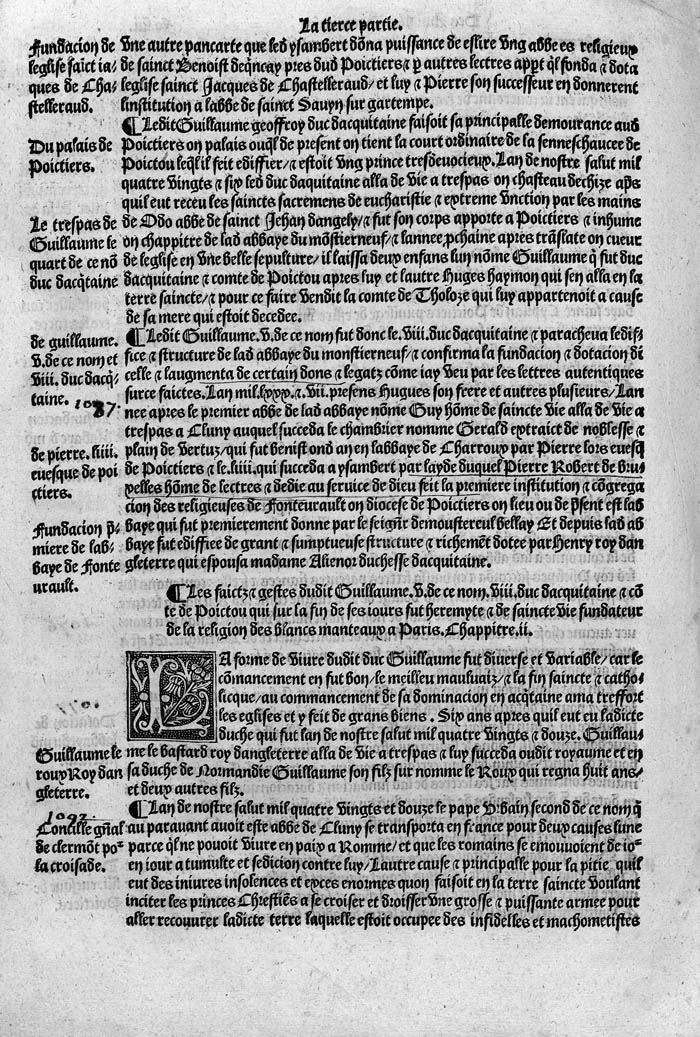 La tierce partie.
Fundacion de
leglise saict ia/
ques de Cha/
stelleraud.
vne autre pancarte que led ysambert dōna puissance de eslire vng abbe es religieux
de sainct Benoist deqncay pres dud Poictiers ⁊ p autres lectres appt ql fonda ⁊ dota
leglise sainct Jacques de Chastelleraud/ et luy ⁊ Pierre son successeur en donnerent
linstitution a labbe de sainct Sauyn sur gartempe.
Du palais de
Poictiers.
¶ Ledit Guillaume geoffroy duc dacquitaine faisoit sa principalle demourance aud
Poictiers on palais ouql de present on tient la court ordinaire de la senneschaucee de
Poictou leql il feit ediffier/ ⁊ estoit vng prince tresdeuocieux. Lan de nostre salut mil
quatre vingts ⁊ six led duc daquitaine alla de vie a trespas on chasteau dechize aps
quil eut receu les saincts sacremens de eucharistie ⁊ extreme vnction par les mains
Le trespas de
Guillaume le
quart de ce nō
duc dacqtaine
de Odo abbe de sainct Jehan dangely/ ⁊ fut son corps apporte a Poictiers ⁊ inhume
on chappitre de lad abbaye du mōstierneuf/ ⁊ lannee pchaine apres trāslate on cueur
de leglise en vne belle sepulture/ il laissa deux enfans lun nōme Guillaume q fut duc
dacquitaine ⁊ comte de Poictou apres luy et lautre Huges haymon qui sen alla en la
terre saincte/ ⁊ pour ce faire vendit la comte de Tholoze qui luy appartenoit a cause
de sa mere qui estoit decedee.
de guillaume.
v. de ce nom et
viii. duc dacq/
taine. 1087.
¶ Ledit Guillaume. v. de ce nom fut donc le. viii. duc dacquitaine ⁊ paracheua ledif/
fice ⁊ structure de lad abbaye du monstierneuf/ ⁊ confirma la fundacion ⁊ dotacion di
celle ⁊ laugmenta de certain dons ⁊ legatz cōme iay veu par les lettres autentiques
surce faictes. Lan mil. lxxx. ⁊. vii. presens Hugues son frere et autres plusieurs/ Lan
nee apres le premier abbe de lad abbaye nōme Guy hōme de saincte vie alla de vie a
trespas a Cluny auquel succeda le chambrier nomme Gerald extraict de noblesse ⁊
de pierre. iiii.
euesque de poi
ctiers.
plain de vertuz/ qui fut benist ond an en labbaye de Charroux par Pierre lors euesq
de Poictiers ⁊ le. iiii. qui succeda a ysambert par layde duquel Pierre Robert de bru/
xelles hōme de lectres ⁊ dedie au seruice de dieu feit la premiere institution ⁊ cōgrega
cion des religieuses de Fonteurault on diocese de Poictiers on lieu ou de psent est lad
Fundacion p/
miere de lab/
baye de Fonte
urault.
baye qui fut premierement donne par le seignr demonstereul bellay Et depuis lad ab
baye fut ediffiee de grant ⁊ sumptueuse structure ⁊ richemēt dotee par Henry roy dan
gleterre qui espousa madame Alienor duchesse dacquitaine.
¶ Les faictz ⁊ gestes dudit Guillaume. v. de ce nom. viii. duc dacquitaine ⁊ cō
te de Poictou qui sur la fin de ses iours fut heremyte ⁊ de saincte vie fundateur
de la religion des blancs manteaux a Paris. Chappitre. ii.
LA forme de viure dudit duc Guillaume fut diuerse et variable/ car le
cōmancement en fut bon/ le meilleu mauluaiz/ ⁊ la fin saincte ⁊ catho/
licque/ au commancement de sa dominacion en acqtaine ama treffort
les eglises et y feit de grans biens. Six ans apres quil eut eu ladicte
duche qui fut lan de nostre salut mil quatre vingts ⁊ douze. Guillau/
Guillaume le
roux Roy dan
gleterre.
me le bastard roy dangleterre alla de vie a trespas ⁊ luy succeda oudit royaume et en
sa duche de Normandie Guillaume son filz sur nomme le Roux qui regna huit ans/
et deux autres filz.
1092.
Concille gnāal
de clermōt po²
la croisade.
¶ Lan de nostre salut mil quatre vingts et douze le pape Vrbain second de ce nom q
au parauant auoit este abbe de Cluny se transporta en france pour deux causes lune
parce ql ne pouoit viure en paix a Romme/ et que les romains se emouuoient de io²
en iour a tumulte et sedicion contre luy/ Lautre cause ⁊ principalle pour la pitie quil
eut des iniures insolences et exces enormes quon faisoit en la terre saincte voulant
inciter les princes Chrestiēs a se croiser et droisser vne grosse ⁊ puissante armee pour
aller recouurer ladicte terre laquelle estoit occupee des infidelles et machometistes